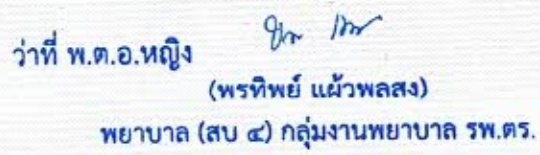 ว่าที่ พ.ต.อ.หญิง
(พรทิพย์ แผ้วพลสง)
พยาบาล (สบ ๔) กลุ่มงานพยาบาล รพ.ตร.